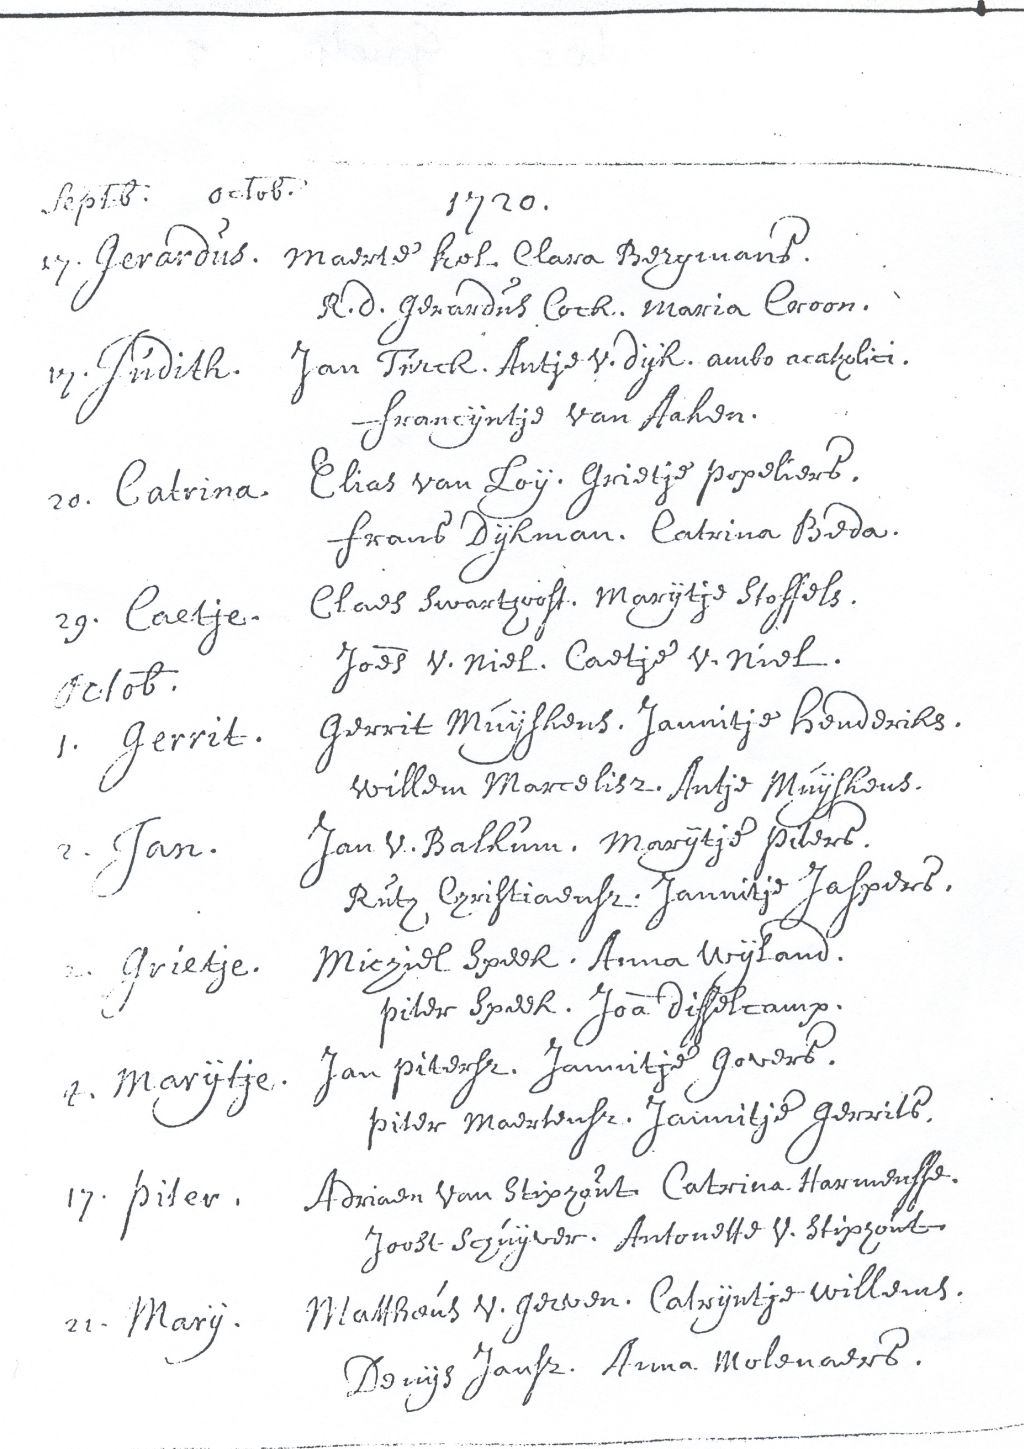 Septb: octob. 1720.
17. Gerardus. Maerte Kol. Clara Bergmans.
R.d. Gerardus Cock. Maria Croon.
17. Judith. Jan Turck. Antje v. Dijk. ambo acatholici.
francijntje van Aaken.
20. Catrina. Elias van Loij. Grietje popeliers.
frans Dijkman. Catrina Beda.
29. Caetje. Claes Swarthooft. Marijtje Stoffels.
Joes v. Niel. Caetje v. Niel.
Octob.
1. Gerrit. Gerrit Muijskens. Jannitje Henderiks.
Willem Marcelisz. Antje Muijskens.
2. Jan. Jan v. Balkum. Marijtje Piters.
Rutg Christiaensz. Jannitje Jaspers.
2. Grietje. Michiel Speek. Anna Wijland.
piter Speek. Joa Disselcamp.
4. Marijtje. Jan pitersz. Jannitje Govers.
piter Maertensz. Jannitje Gerrits.
17. piter. Adriaen van Stiphout. Catrina Harmensse.
Joost Schuijver. Antonette v. Stiphout.
21. Marij. Mattheus v. Gerven. Catrijntje Willems.
Denijs Jansz. Anna Molenaers.